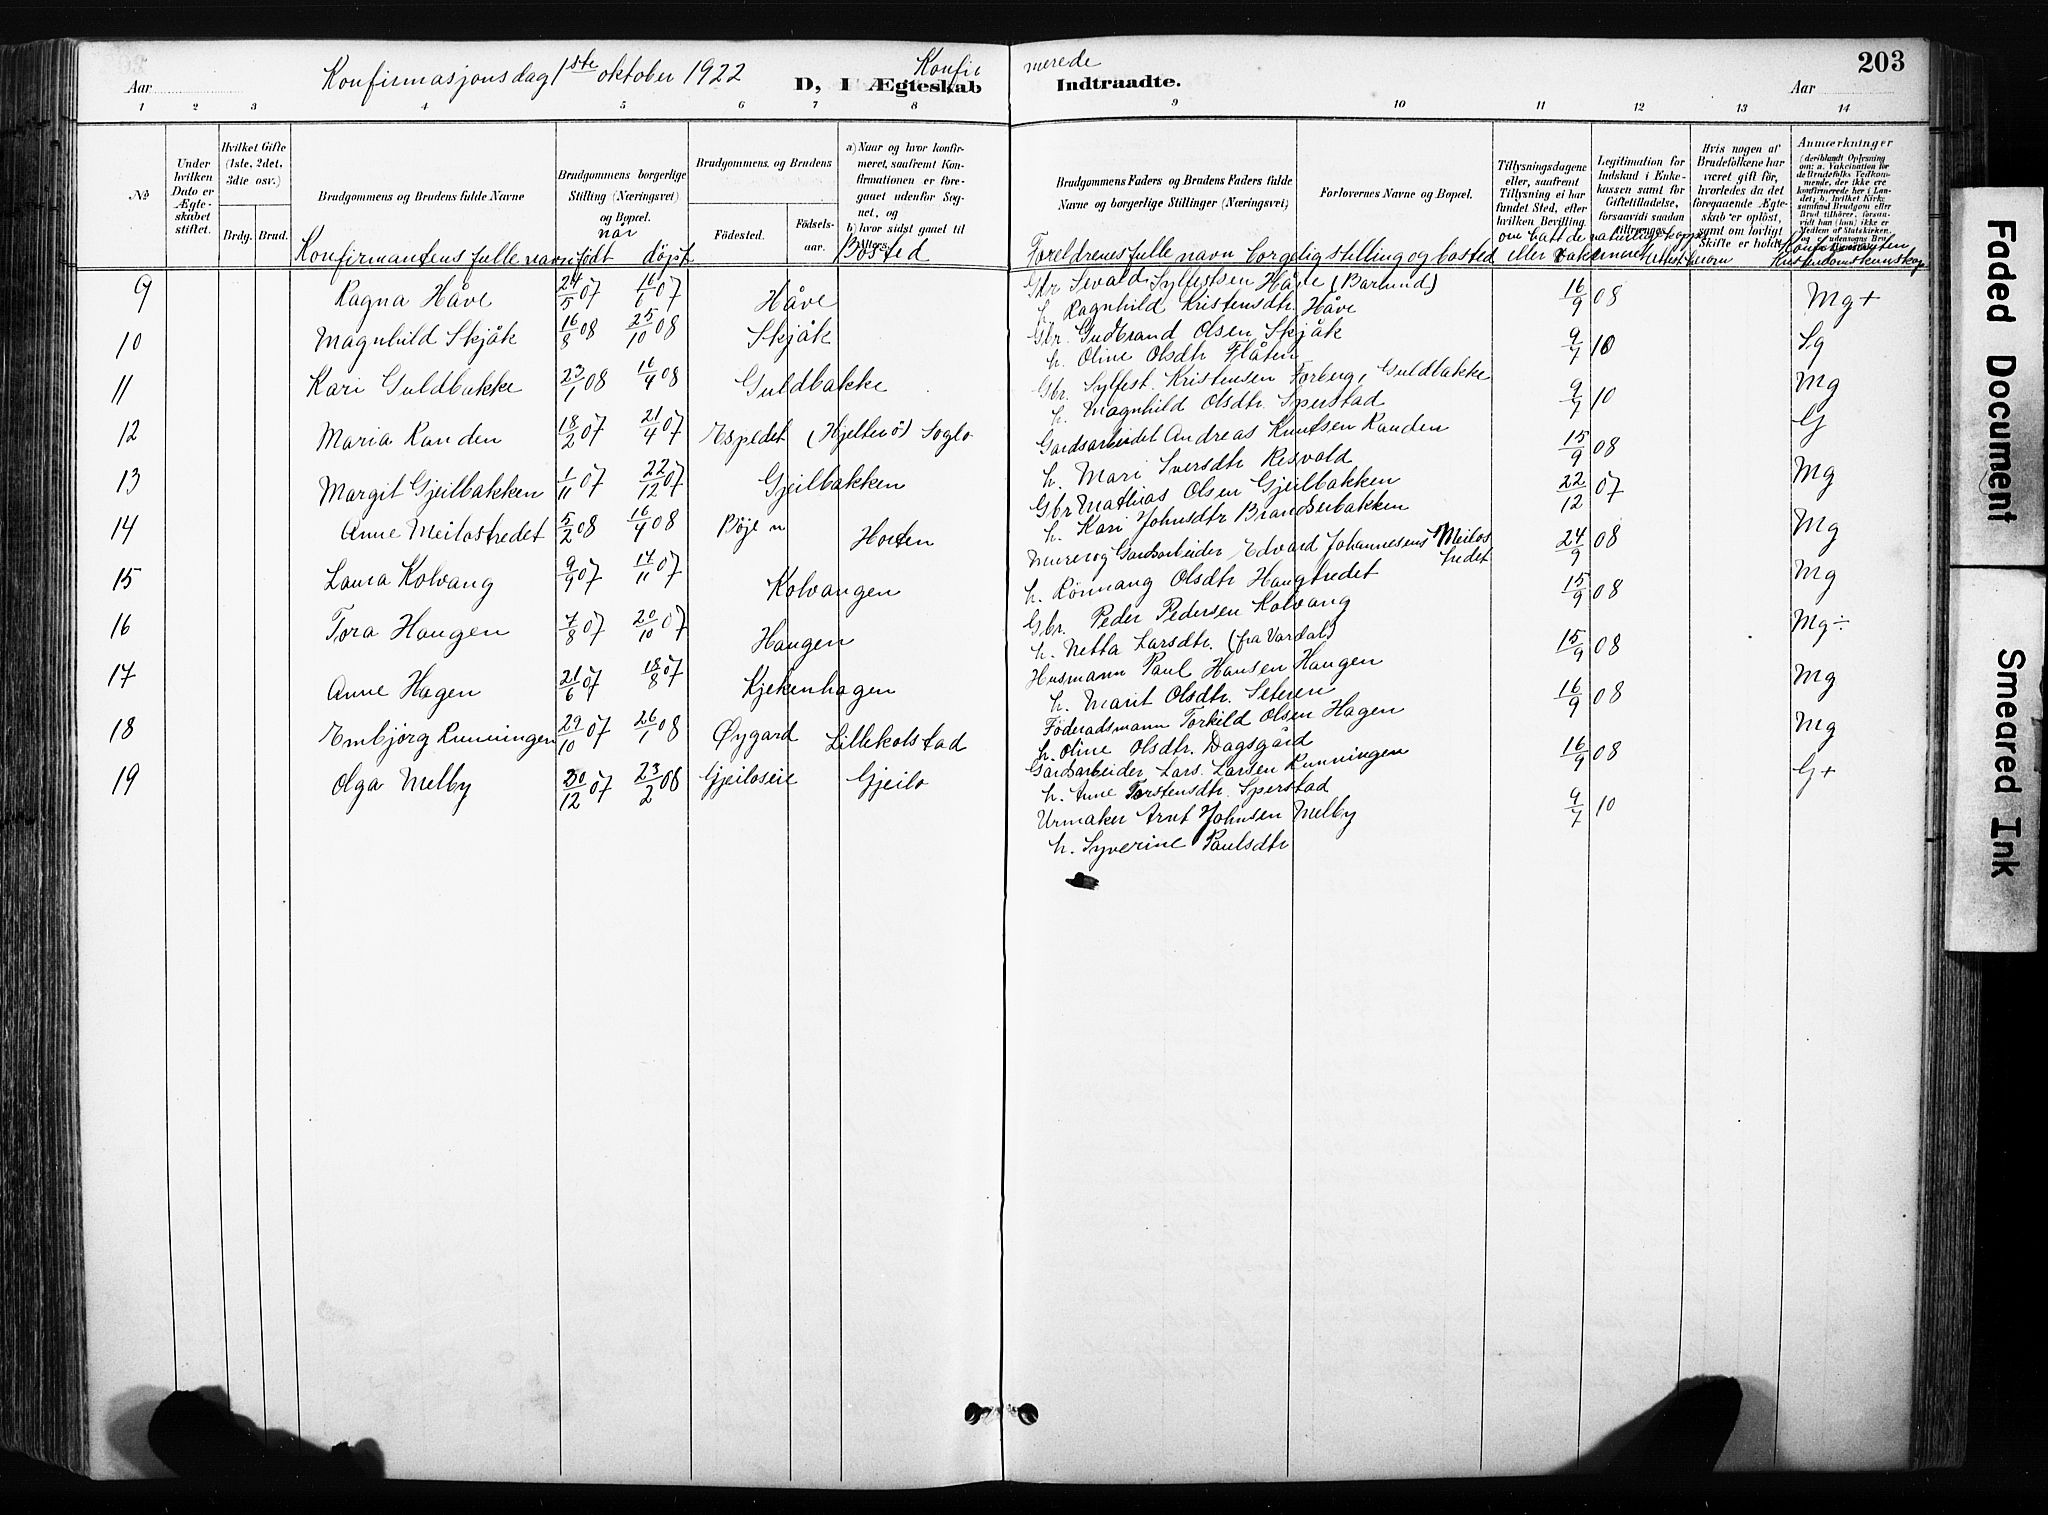 Konfirmasjonsdag 1ste oktober 1922 Konfirmerede
203
Aar D, Ægteskab Indtraadte. Aar
1 2 3 4 5 6 7 8 9 10 11 12 13 14
№ Under hvilken Dato er Ægteskabet stiftet. Hvilket Gifte (1ste, 2det, 3die osv.) Brdg. Brud. Brudgommens og Brudens fulde Navne Brudgommens borgerlige Stilling (Næringsvei) og Bopæl. Brudgommens og Brudens Fødested. Fødselsaar. a) Naar og hvor konfirmeret, saafremt Konfirmationen er foregaaet udenfor Sognet, og b) hvor sidst gaaet til Alters.
Brudgommens Faders og Brudens Faders fulde Navne og borgerlige Stillinger (Næringsvei) Forlovernes Navne og Bopæl. Tillysningsdagene eller, saafremt Tillysning ei har fundet Sted, efter hvilken Bevilling Legitimation for Indskud i Enkekassen samt for Giftetilladelse, forsaavidt saadan tiltrænges. Hvis nogen af Brudefolkene har været gift før, hvorledes da det foregaaende Ægteskab er opløst, samt om lovligt Skifte er holdt. Anmærkninger
Konfirmantens fulle navn når født døpt Bosted Foreldrenes fulle navn borgelig stilling og bosted om hatt de naturlige kopper eller vaksineret Attest herom Konfirmanten Kristendomskunskap
9 Ragna Håve 24/5 07 16/6 07 Håve Gbr. Sevald Sylfestsen Håve (Barlund) 16/9 08 Mg+
h. Ragnhild Kristensdtr. Håve
10 Magnhild Skjåk 16/8 08 25/10 08 Skjåk Gbr. Gudbrand Olsen Skjåk 9/7 10 Sg
h. Oline Olsdtr Flåten
11 Kari Guldbakke 23/1 08 16/4 08 Guldbakke Gbr. Sylfest Kristensen Forberg, Guldbakke 9/7 10 Mg
h. Magnhild Olsdtr. Sperstad
12 Maria Randen 18/2 07 21/4 07 Espedet (Hjeltnø) Soglo Gardsarbeidet Andreas Knutsen Randen 15/9 08 G
h. Mari Iversdtr Risvald
13 Margit Gjeilbakken 1/11 07 22/12 07 Gjeilbakken Gbr Mathias Olsen Gjeilbakken 22/12 07 Mg
h. Kari Johnsdtr Brandserbakken
14 Anne Meilostredet 5/2 08 16/4 08 Bøje n Horten Murer og Gardsarbeider Edvard Johannesens Meilostredet 24/9 08 Mg
h. Rønnaug Olsdtr Haugtredet
15 Laura Kolvang 9/9 07 14/11 07 Kolvangen Gbr. Peder Pedersen Kolvang 15/9 08 Mg
h. Netta Larsdtr. (fra Vardal)
16 Tora Haugen 7/8 07 20/10 07 Haugen Husmann Paul Hansen Haugen 15/9 08 Mg÷
h. Marit Olsdtr. Seteren
17 Anne Hagen 21/6 07 18/8 07 Kjekenhagen Föderådsmann Torkild Olsen Hagen 16/9 08 Mg
h. Oline Olsdtr. Dagsgård
18 Embjørg Runningen 29/10 07 26/1 08 Øygard Lillekolstad Gardsarbeider Lars Larsen Runningen 16/9 08 Mg
h. Anne Torstensdtr. Sperstad
19 Olga Melby 30/12 07 23/2 08 Gjeiloseie Gjeilo Urmaker Arnt Johnsen Melby 9/7 10 G+
h. Syverine Paulsdtr
Faded Document
Smeared Ink